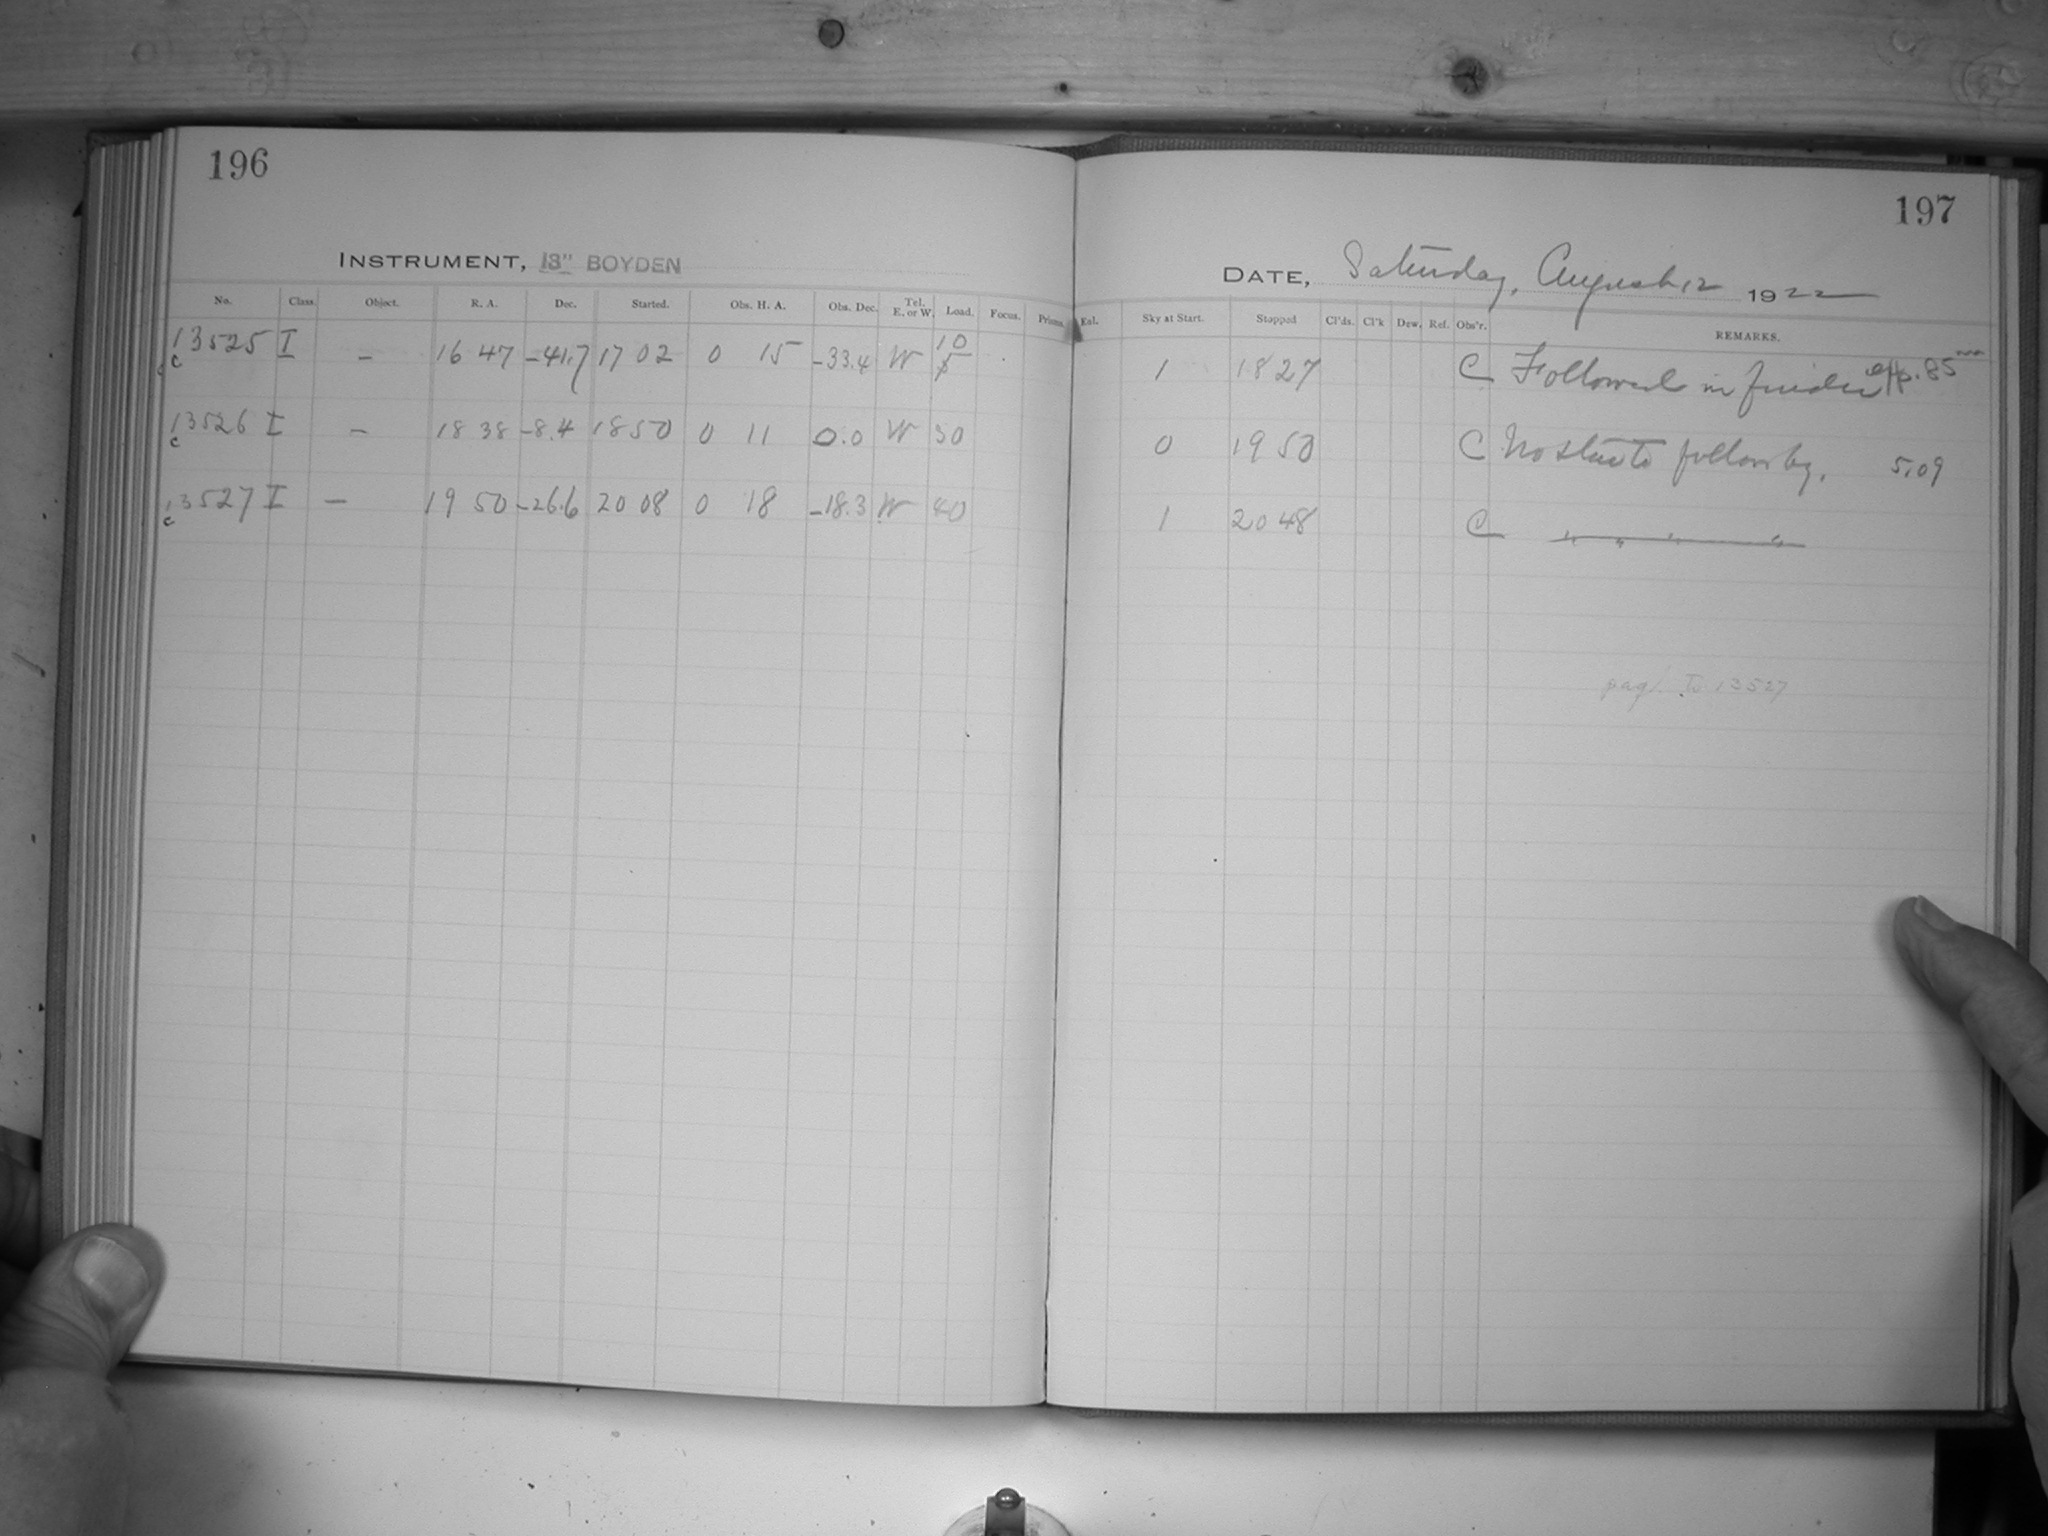 196
INSTRUMENT, 13" BOYDEN
No. Class. Object. R. A. Dec. Started. Obs. H. A. Obs. Dec. Tel. E. or W. Load. Focus. Prisms.
c 13525 I – 16 47 –41.7 17 02 0 15 –33.4 W 10
c 13526 I – 18 38 –8.4 18 50 0 11 0.0 W 30
c 13527 I – 19 50 –26.6 20 08 0 18 –18.3 W 40
197
DATE, Saturday, August 12 1922
Sky at Start. Stopped Cl'ds. Cl'k Dew. Ref. Obs'r. REMARKS.
1 18 27 C Followed in finder exp. 85
0 19 50 C No star to follow by. 5.09
1 20 48 C " " " "
to 13527